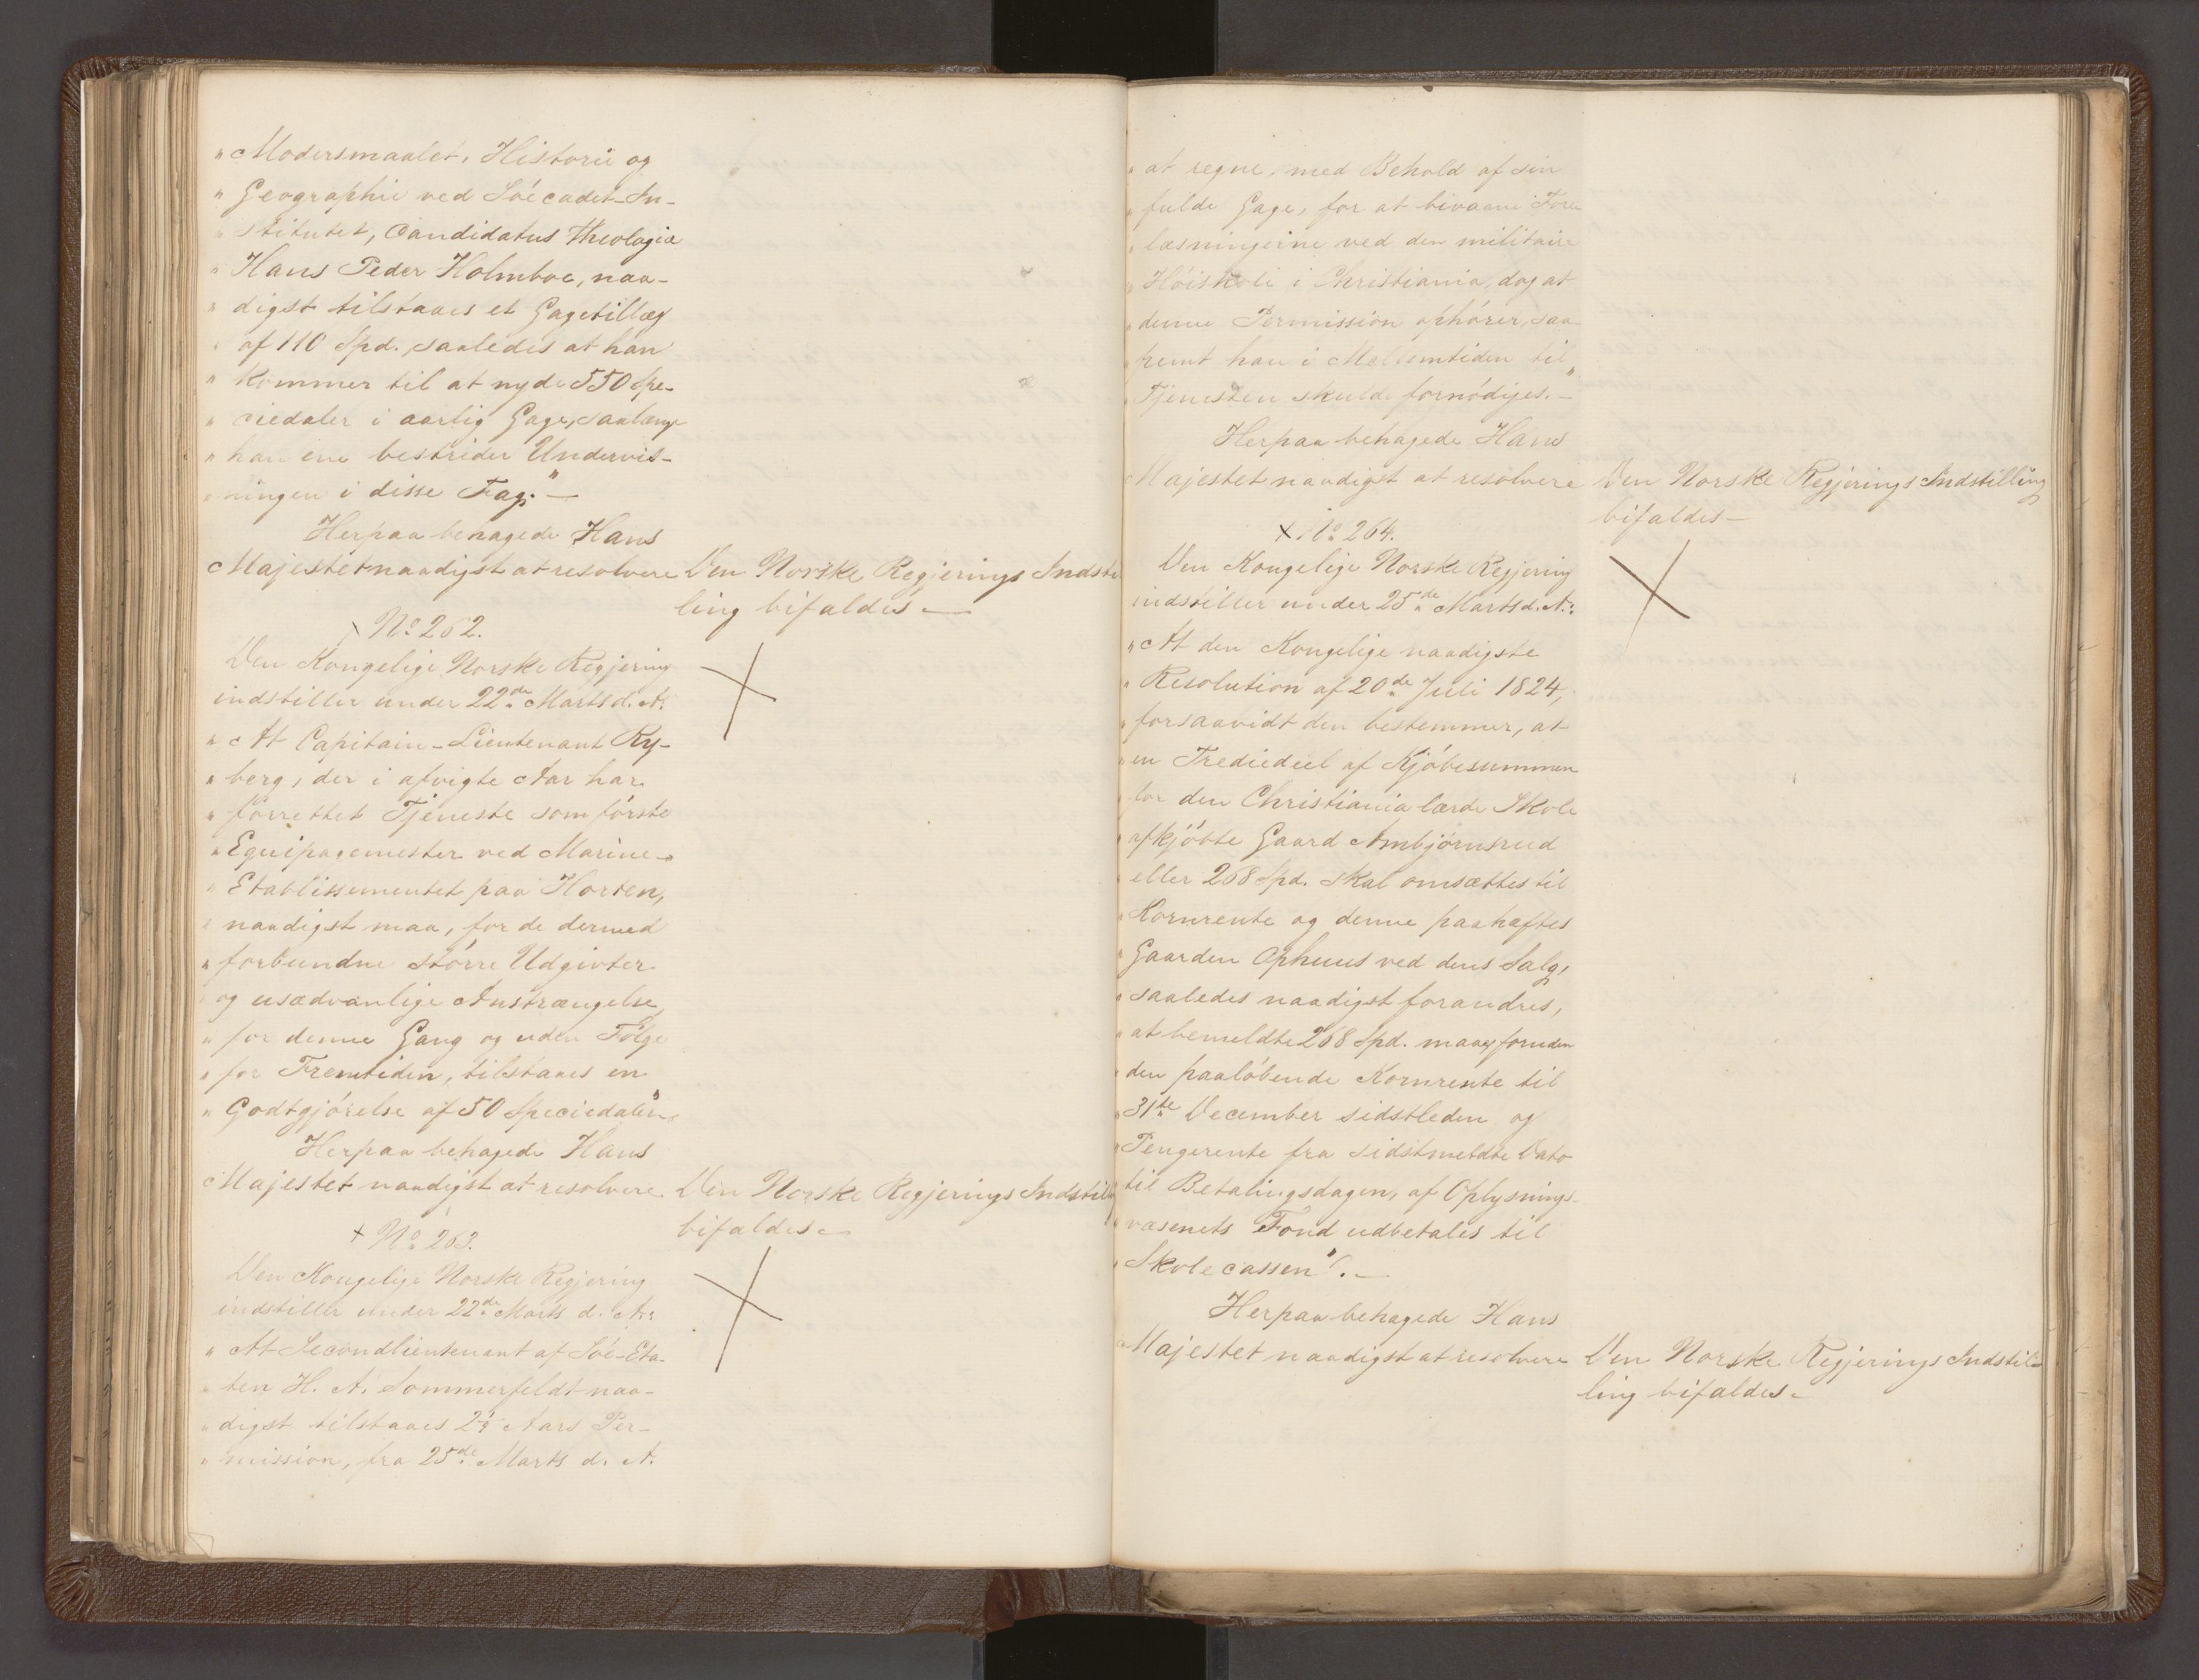 " Modersmaalet, Historie og
" Geographie ved Söecadet-In-
" stitutet, Candidatus Theologiæ
" Hans Peder Holmboe, naa-
" digst tilstaaes et Gagetillæg
" af 110 Spd. saaledes at han
" kommer til at nyde 550 Spe-
" ciedaler i aarlig Gage, saalænge
" han ene bestrider Undervis-
" ningen i disse Fag." —
Herpaa behagede Hans
Majestet naadigst at resolvere
Den Norske Regjerings Indstil
ling bifaldes —
No 262.
Den Kongelige Norske Regjering
indstiller under 22de Marts d. A:
" At Capitain-Lieutenant Ry-
" berg, der i afvigte Aar har
" forrettet Tjeneste som förste
" Equipagemester ved Marine-
" Etablissementet paa Horten,
" naadigst maa, for de dermed
" forbundne större Udgivter
" og usædvanlige Anstrængelse,
" for denne Gang og uden Fölge
" for Fremtiden, tilstaaes en
" Godtgjörelse af 50 Speciedaler"
Herpaa behagede Hans
Majestet naadigst at resolvere
Den Norske Regjerings Indstilling
bifaldes —
+ No 263.
Den Kongelige Norske Regjering
indstiller under 22de Marts d. A:
" At Secondlieutenant af Söe-Eta-
" ten H. A. Sommerfeldt naa-
" digst tilstaaes 2½ Aars Per-
" mission, fra 25de Marts d. A.
" at regne, med Behold af sin
" fulde Gage, for at bivaane Fore
" læsningerne ved den militaire
" Höiskole i Christiania, dog at
" denne Permission ophörer, saa
" fremt han i Mellemtiden til
" Tjenesten skulde fornödiges." —
Herpaa behagede Hans
Majestet naadigst at resolvere
Den Norske Regjerings Indstilling
bifaldes —
+ No 264.
Den Kongelige Norske Regjering
indstiller under 25de Marts d. A.:
" At den Kongelige naadigste
" Resolution af 20de Juli 1824,
" forsaavidt den bestemmer, at
" en Trediedeel af Kjöbesummen
" for den Christiania lærde Skole
" afkjöbte Gaard Ambjörnsrud
" eller 268 Spd. skal omsættes til
" Kornrente og denne paahæftes
" Gaarden Ophuus ved dens Salg,
" saaledes naadigst forandres,
" at bemeldte 268 Spd. maae, foruden
" den paalöbende Kornrente til
" 31te December sidstleden og
" Pengerente fra sidstmeldte Dato
" til Betalingsdagen, af Oplysnings-
" væsenets Fond udbetales til
" Skolecassen". —
Herpaa behagede Hans
Majestet naadigst at resolvere
Den Norske Regjerings Indstil-
ling bifaldes —